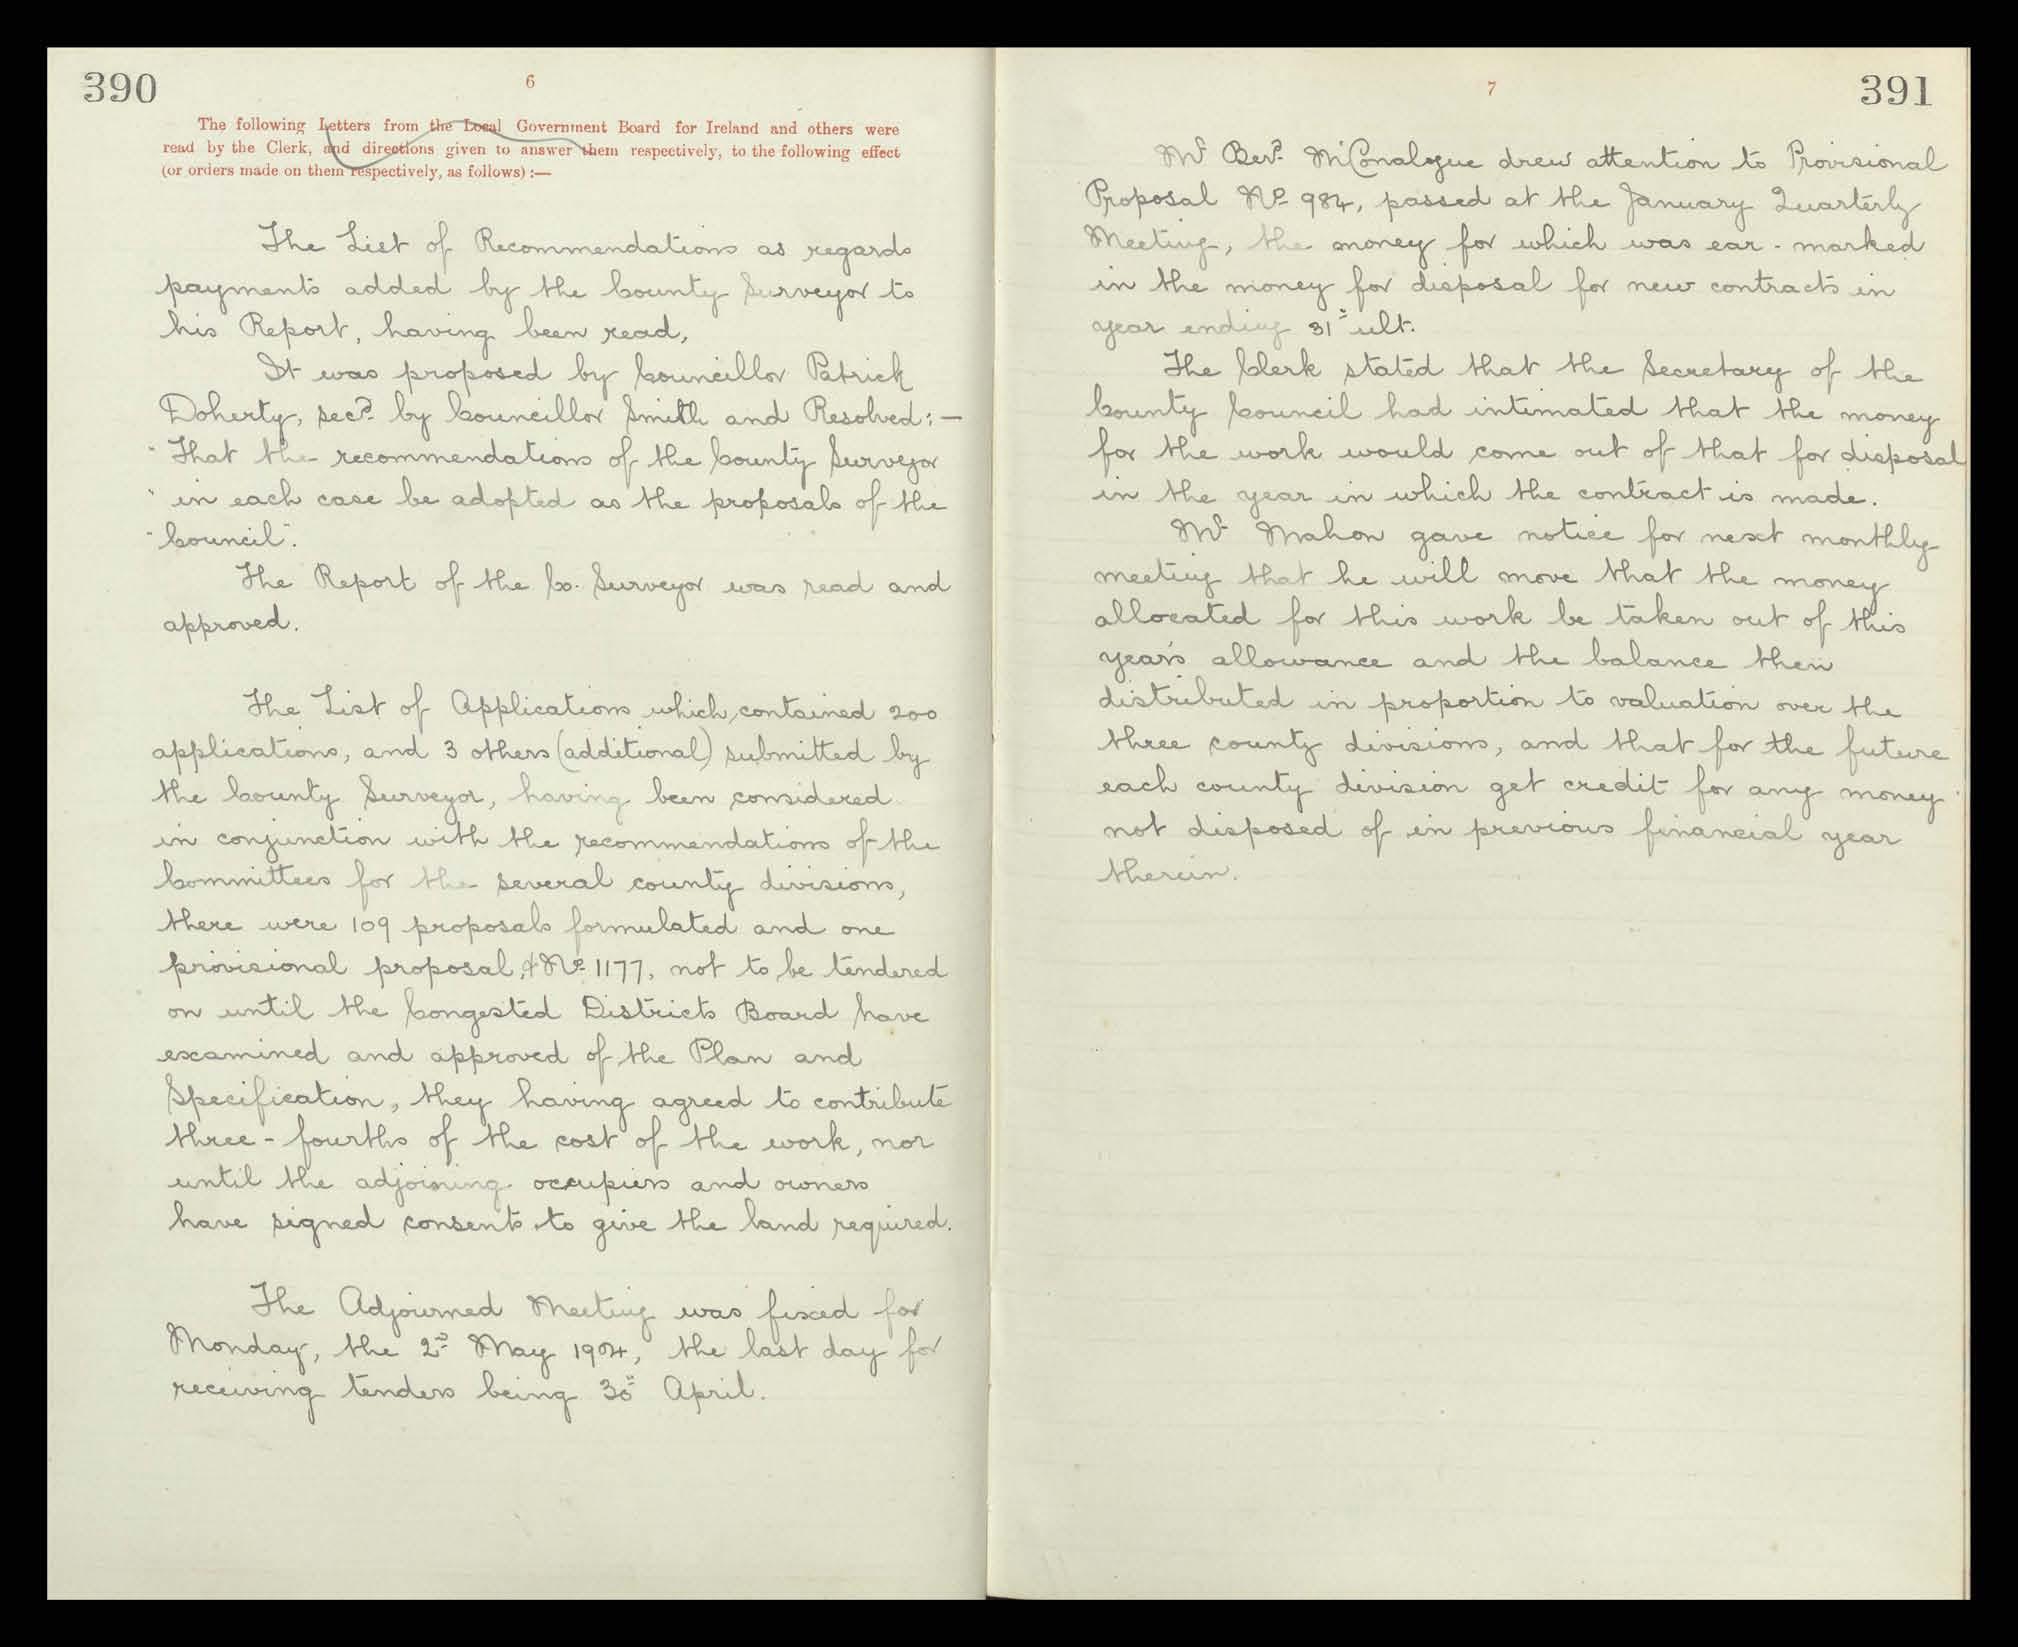 390
6
The following Letters from the Local Government Board for Ireland and others were
read by the Clerk, and directions given to answer them respectively, to the following effect
(or orders made on them respectively, as follows) :—
The List of Recommendations as regards
payments added by the County Surveyor to
his Report, having been read,
It was proposed by Councillor Patrick
Doherty, secd. by Councillor Smith and Resolved: —
"That the recommendations of the County Surveyor
"in each case be adopted as the proposals of the
"Council".
The Report of the Co. Surveyor was read and
approved.
The List of Applications which, contained 200
applications, and 3 others (additional) submitted by
the County Surveyor, having been considered
in conjunction with the recommendations of the
Committees for the several county divisions,
there were 109 proposals formulated and one
provisional proposal, & No. 1177, not to be tendered
on until the Congested Districts Board have
examined and approved of the Plan and
Specification, they having agreed to contribute
three-fourths of the cost of the work, nor
until the adjoining occupiers and owners
have signed consents to give the land required.
The Adjourned Meeting was fixed for
Monday, the 2nd May 1904, the last day for
receiving tenders being 30th April.
7
391
Mr Berd. McConalogue drew attention to Provisional
Proposal No. 984, passed at the January Quarterly
Meeting, the money for which was ear-marked
in the money for disposal for new contracts in
year ending 31st ult.
The Clerk stated that the Secretary of the
County Council had intimated that the money
for the work would come out of that for disposal
in the year in which the contract is made.
Mr Mahon gave notice for next monthly
meeting that he will move that the money
allocated for this work be taken out of this
year's allowance and the balance then
distributed in proportion to valuation over the
three county divisions, and that for the future
each county division get credit for any money
not disposed of in previous financial year
therein.